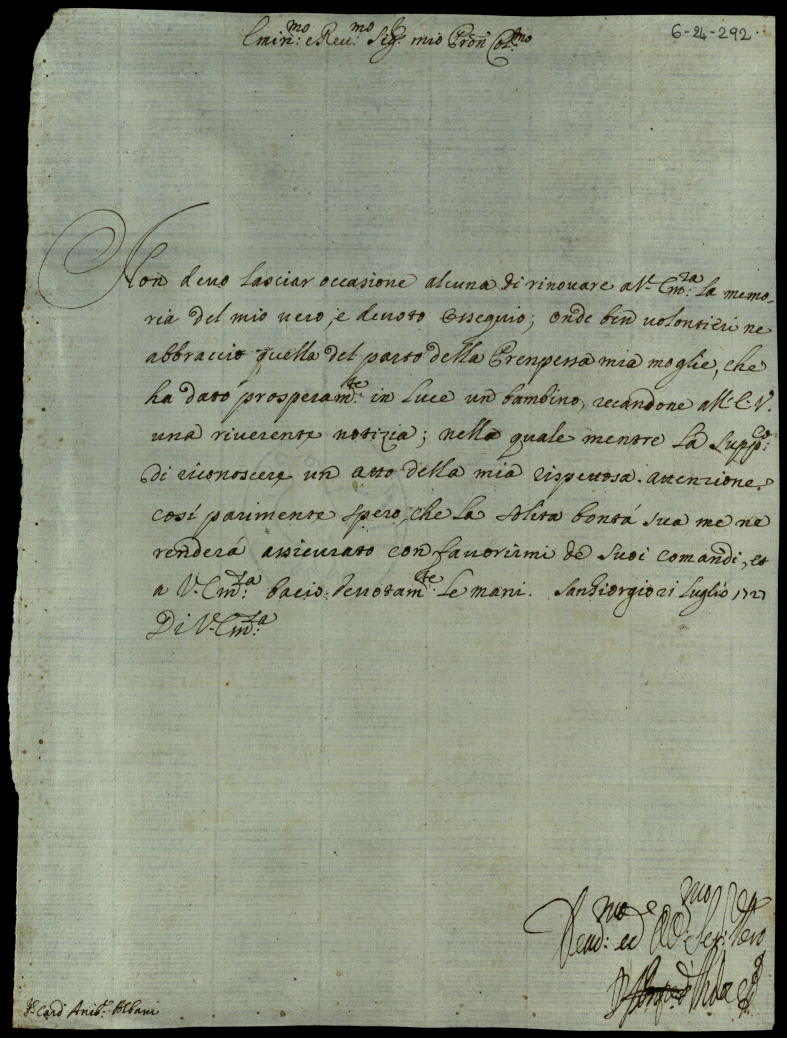 6-24-292.
Emin:mo e Reu:mo Sig:r mio Pron Col:mo
Non deuo lasciar occasione alcuna di rinouare a V. Em:za la memo-
ria del mio uero, e deuoto ossequio; onde ben uolontieri ne
abbraccio quella del parto della Prenpessa mia moglie, che
ha dato prosperam:te in luce un bambino, recandone all' E. V.
una riuerente notizia; nella quale mentre la supp:co
di riconoscere un atto della mia rispettosa attenzione,
così parimente spero, che la solita bontá sua me ne
renderá assicurato con fauorirmi de suoi comandi, et
a V. Em:za bacio deuotam:te le mani. San Giorgio 21 Luglio 1727
Di V. Em:za
S:r Card Anib:e Albani